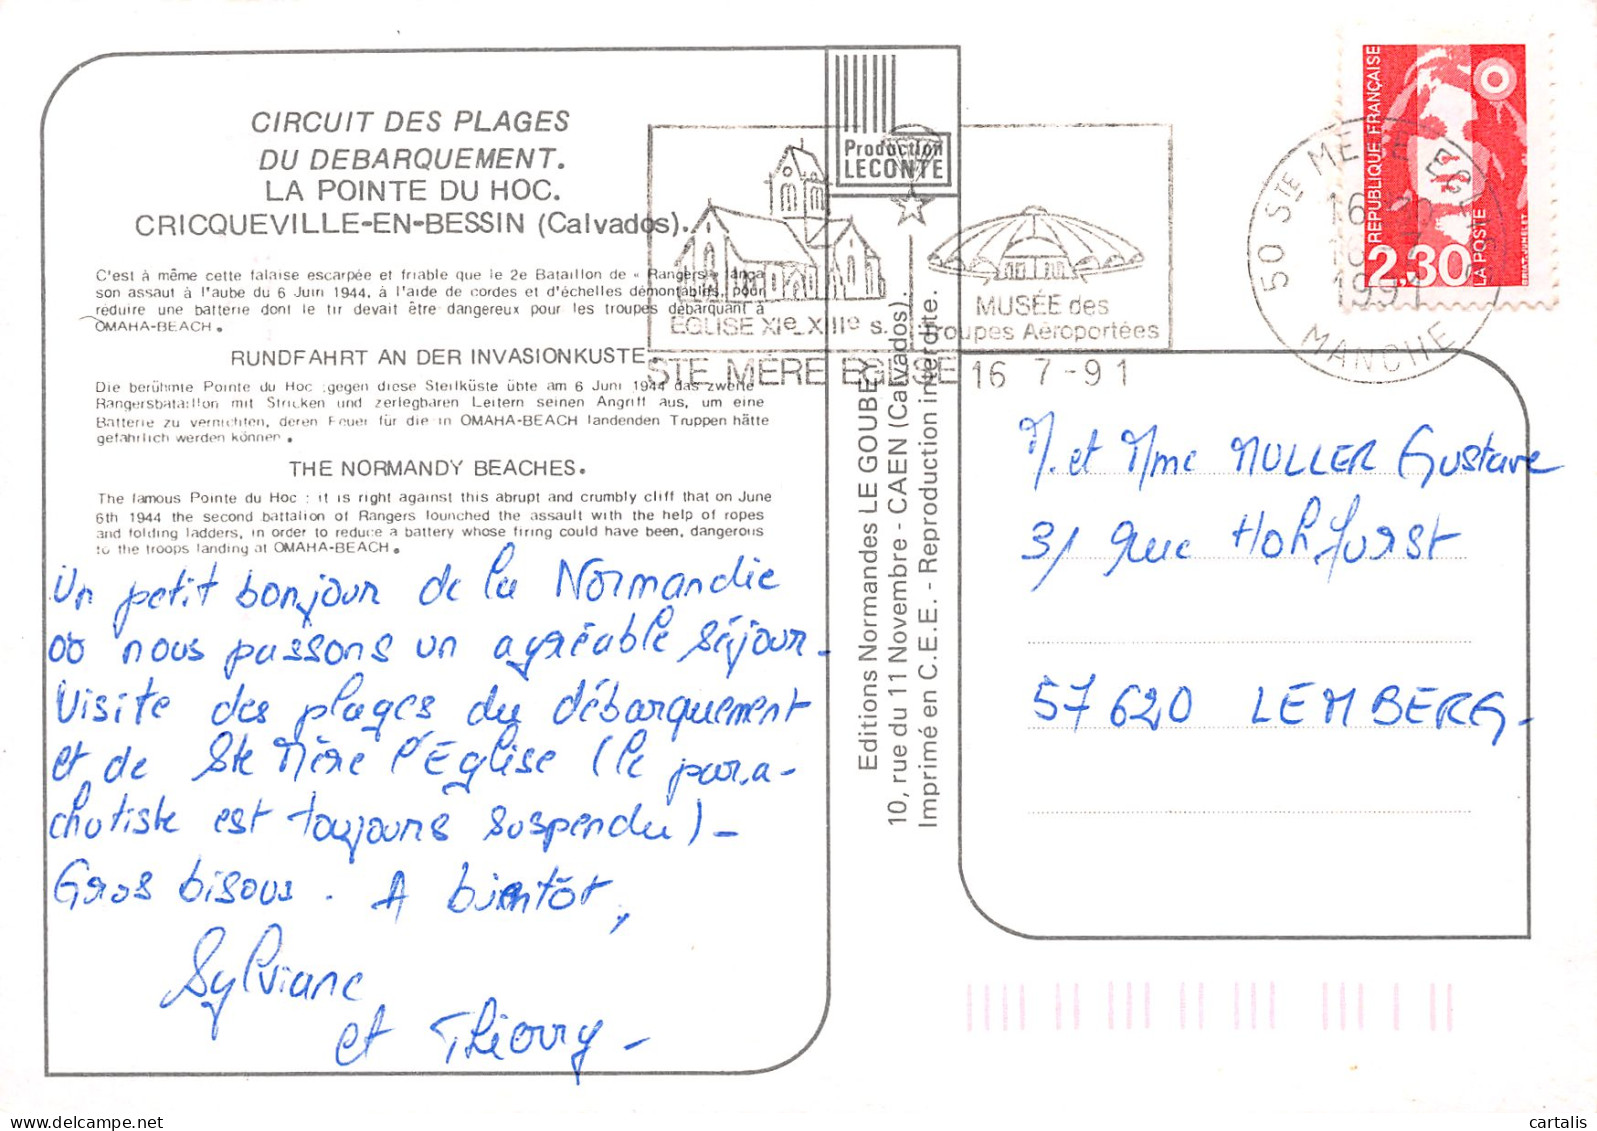 CIRCUIT DES PLAGES
DU DEBARQUEMENT.
LA POINTE DU HOC.
CRICQUEVILLE-EN-BESSIN (Calvados).
C'est à même cette falaise escarpée et friable que le 2e Bataillon de « Rangers » lança
son assaut à l'aube du 6 Juin 1944, à l'aide de cordes et d'échelles démontables, pour
réduire une batterie dont le tir devait être dangereux pour les troupes débarquant à
OMAHA-BEACH.
RUNDFAHRT AN DER INVASIONKUSTE.
Die berühmte Pointe du Hoc : gegen diese Steilküste übte am 6 Juni 1944 das zweite
Rangersbataillon mit Stricken und zerlegbaren Leitern seinen Angriff aus, um eine
Batterie zu vernichten, deren Feuer für die in OMAHA-BEACH landenden Truppen hätte
gefährlich werden können.
THE NORMANDY BEACHES.
The famous Pointe du Hoc : it is right against this abrupt and crumbly cliff that on June
6th 1944 the second battalion of Rangers lounched the assault with the help of ropes
and folding ladders, in order to reduce a battery whose firing could have been, dangerous
to the troops landing at OMAHA-BEACH.
Un petit bonjour de la Normandie
où nous passons un agréable séjour.
Visite des plages du débarquement
et de Ste Mère l'Eglise (le para-
chutiste est toujours suspendu) -
Gros bisous. A bientôt,
Sylviane
et Thierry -
Production
LECONTE
EGLISE XIe_XIIIe s.
MUSÉE des
Troupes Aéroportées
STE MERE EGLISE 16 7 -91
Editions Normandes LE GOUBEY
10, rue du 11 Novembre - CAEN (Calvados).
Imprimé en C.E.E. - Reproduction interdite.
REPUBLIQUE FRANÇAISE
2,30
LA POSTE
50 STE MERE EGLISE
1991
MANCHE
M. et Mme MULLER Gustave
31 Rue Hohfurst
57620 LEMBERG -
cartalis